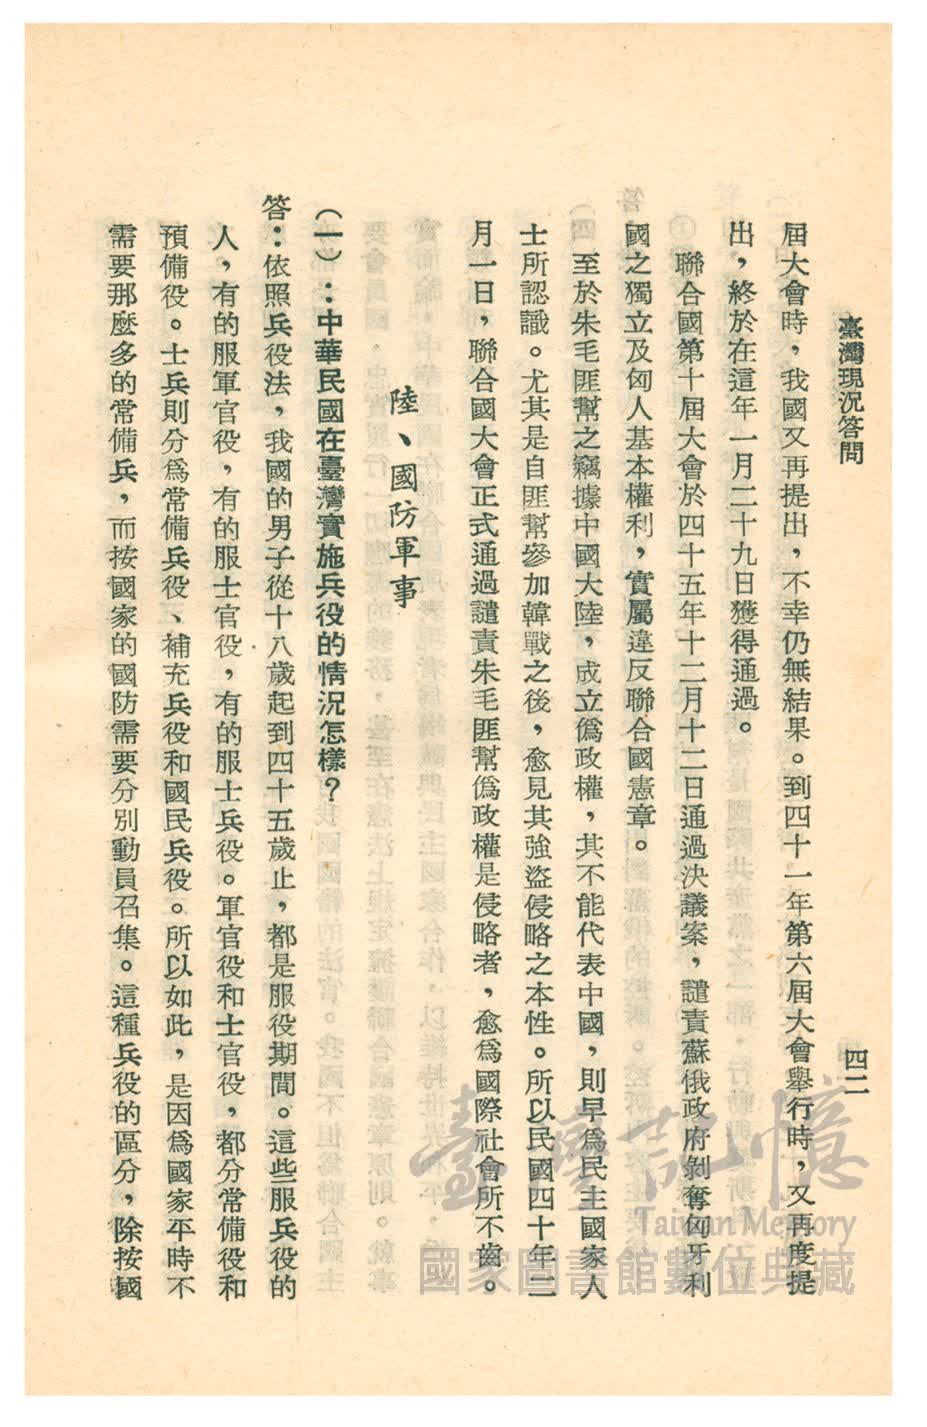 臺灣現況答問
四二
屆大會時，我國又再提出，不幸仍無結果。到四十一年第六屆大會舉行時，又再度提
出，終於在這年一月二十九日獲得通過。
聯合國第十屆大會於四十五年十二月十二日通過決議案，譴責蘇俄政府剝奪匈牙利
國之獨立及匈人基本權利，實屬違反聯合國憲章。
至於朱毛匪幫之竊據中國大陸，成立僞政權，其不能代表中國，則早爲民主國家人
士所認識。尤其是自匪幫參加韓戰之後，愈見其強盜侵略之本性。所以民國四十年二
月一日，聯合國大會正式通過譴責朱毛匪幫僞政權是侵略者，愈爲國際社會所不齒。
陸、國防軍事
（一）：中華民國在臺灣實施兵役的情況怎樣？
答：依照兵役法，我國的男子從十八歲起到四十五歲止，都是服役期間。這些服兵役的
人，有的服軍官役，有的服士官役，有的服士兵役。軍官役和士官役，都分常備役和
預備役。士兵則分爲常備兵役、補充兵役和國民兵役。所以如此，是因爲國家平時不
需要那麼多的常備兵，而按國家的國防需要分別動員召集。這種兵役的區分，除按國
臺灣記憶
Taiwan Memory
國家圖書館數位典藏